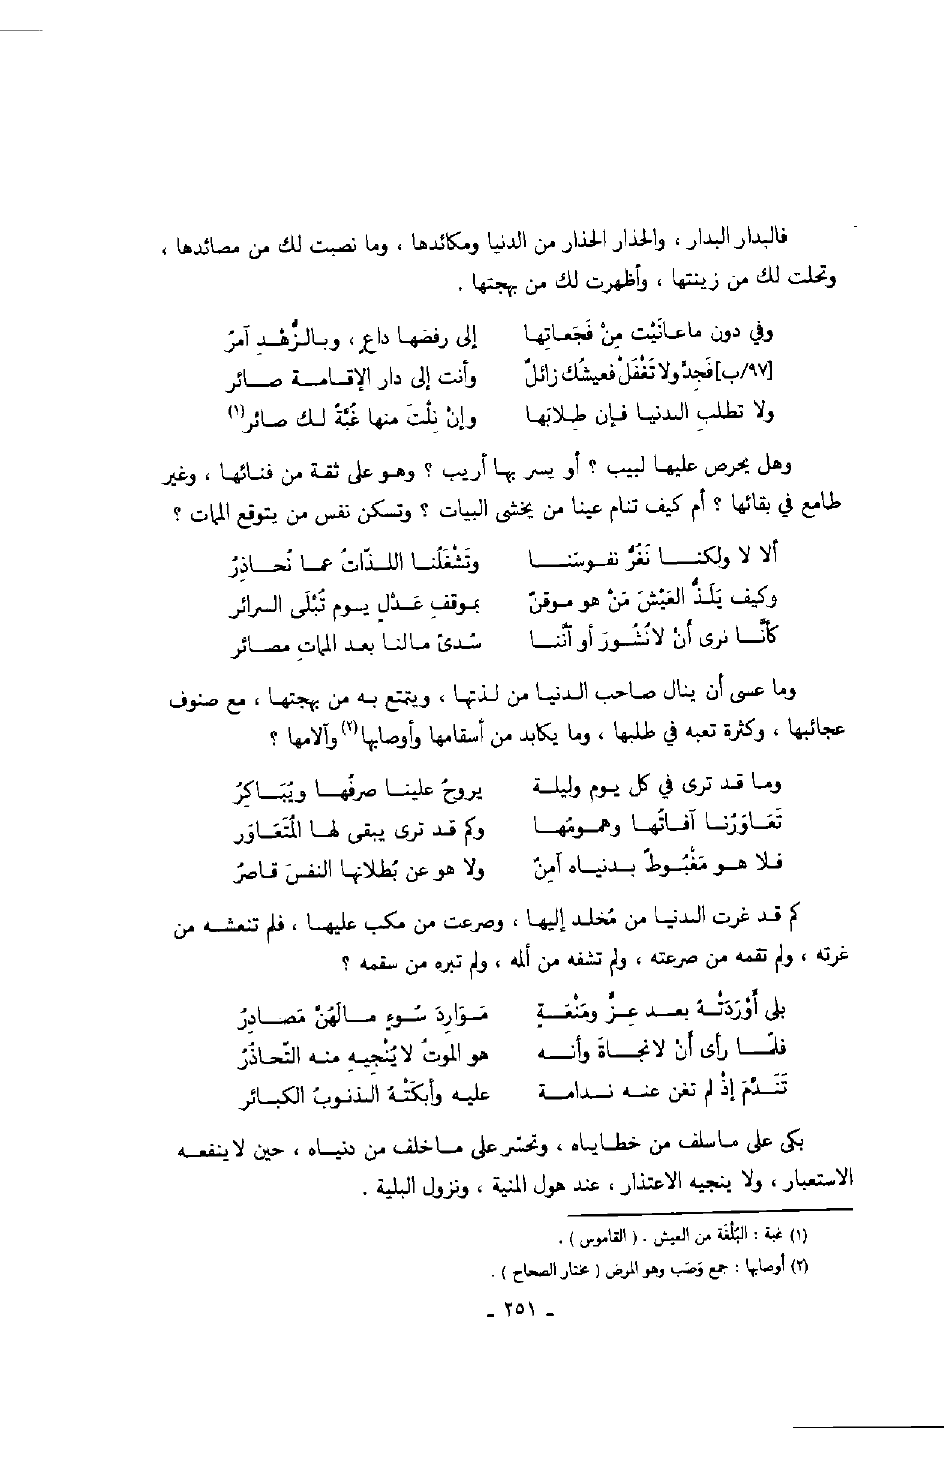 فالبدار البدار ، والحذار الحذار من الدنيا ومكائدها ، وما نصبت لك من مصائدها ،
وتحلت لك من زينتها ، وأظهرت لك من بهجتها .
وفي دون ماعانَيْت مِنْ فَجَعاتِها إلى رفضها داعٍ ، وبالزُّهْدِ آمرُ
[٩٧/ب] فَجِدَّ ولا تَغْفَلْ فعيشُك زائلٌ وأنت إلى دار الإقامة صائر
ولا تطلبِ الدنيا فإن طِلابَها وإنْ نِلْتَ منها غُبَّةً لك ضائر(١)
وهل يحرص عليها لبيب ؟ أو يسر بها أريب ؟ وهو على ثقة من فنائها ، وغير
طامع في بقائها ؟ أم كيف تنام عينا من يخشى البيات ؟ وتسكن نفس من يتوقع الممات ؟
ألا لا ولكنا نَغُرُّ نفوسَنا وتَشْغَلُنا اللذّاتُ عما نُحاذِرُ
وكيف يَلَذُّ العَيْشَ مَنْ هو موقنٌ بموقفِ عَدْلٍ يوم تُبْلَى السرائر
كأنَّا نرى أنْ لانُشُورَ أو أنَّنا سُدىً مالنا بعد المماتِ مصائر
وما عسى أن ينال صاحب الدنيا من لذتها ، ويتمتع به من بهجتها ، مع صنوف
عجائبها ، وكثرة تعبه في طلبها ، وما يكابد من أسقامها وأوصابها(٢) وآلامها ؟
وما قد ترى في كل يوم وليلة يروحُ علينا صرفُها ويُبَاكرُ
تَعَاوَرُنا آفاتُها وهمومُها وكم قد ترى يبقى لها المُتَعَاوَر
فلا هو مَغْبُوطٌ بدنياه آمِنٌ ولا هو عن بُطلانِها النفسَ قاصرُ
كم قد غرت الدنيا من مُخلد إليها ، وصرعت من مكب عليها ، فلم تنعشه من
غرته ، ولم تقمه من صرعته ، ولم تشفه من ألمه ، ولم تبره من سقمه ؟
بلى أَوْرَدَتْهُ بعد عِزٍّ ومَنْعَةٍ مَوَارِدَ سُوءٍ مالَهُنَّ مَصَادِرُ
فلمّا رأى أنْ لانجاةَ وأنه هو الموتُ لايُنْجِيهِ منه التَّحاذُرُ
تَنَدَّمَ إذْ لم تغن عنه ندامة عليه وأبكَتْهُ الذنوبُ الكبائر
بكى على ماسلف من خطاياه ، وتحسَّر على ماخلف من دنياه ، حين لاينفعه
الاستعبار ، ولا ينجيه الاعتذار ، عند هول المنية ، ونزول البلية .
(١) غبة : البُلْغَة من العيش . ( القاموس ) .
(٢) أوصابها : جمع وَصَب وهو المرض ( مختار الصحاح ) .
ـ ٢٥١ ـ